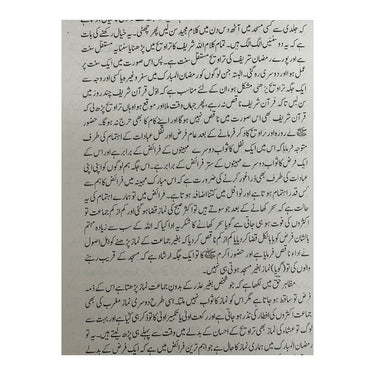 کہ جلدی سے کسی مسجد میں آٹھ دس دن میں کلام مجید سن لیں پھر چھٹی۔ یہ خیال رکھنے کی بات
ہے کہ یہ دو سنتیں الگ الگ ہیں۔ تمام کلام اللہ شریف کا تراویح میں پڑھنا یا سننا یہ مستقل سنت
ہے اور پورے رمضان شریف کی تراویح مستقل سنت ہے۔ پس اس صورت میں ایک سنت پر
عمل ہوا اور دوسری رہ گئی۔ البتہ جن لوگوں کو رمضان المبارک میں سفر وغیرہ یا کسی اور وجہ سے
ایک جگہ تراویح پڑھنی مشکل ہو، ان کے لئے مناسب ہے کہ اوّل قرآن شریف چند روز میں
سن لیں تاکہ قرآن شریف ناقص نہ رہے۔ پھر جہاں وقت ملا اور موقع ہوا وہاں تراویح پڑھ لی کہ
قرآن شریف بھی اس صورت میں ناقص نہیں ہوگا اور اپنے کام کا بھی حرج نہ ہوگا۔ حضور
ﷺ نے روزہ اور تراویح کا ذکر فرمانے کے بعد عام فرض اور نفل عبادات کے اہتمام کی طرف
متوجہ فرمایا کہ اس میں ایک نفل کا ثواب دوسرے مہینوں کے فرائض کے برابر ہے اور اس کے
ایک فرض کا ثواب دوسرے مہینوں کے ستر فرائض کے برابر ہے۔ اس جگہ ہم لوگوں کو اپنی اپنی
عبادات کی طرف بھی ذرا غور کرنے کی ضرورت ہے کہ اس مبارک مہینہ میں فرائض کا ہم سے
کس قدر اہتمام ہوتا ہے اور نوافل میں کتنا اضافہ ہوتا ہے۔ فرائض میں تو ہمارے اہتمام کی یہ
حالت ہے کہ سحر کھانے کے بعد جو سوتے ہیں تو اکثر صبح کی نماز قضا ہو گئی اور کم از کم جماعت تو
اکثروں کی فوت ہو ہی جاتی ہے گویا سحر کھانے کا شکریہ ادا کیا کہ اللہ کے سب سے زیادہ مہتم
بالشان فرض کو یا بالکل قضا کر دیا یا کم از کم ناقص کر دیا کہ بغیر جماعت کے نماز پڑھنے کو اہل اصول
نے اداء ناقص فرمایا ہے اور حضور اکرم ﷺ کا تو ایک جگہ ارشاد ہے کہ مسجد کے قریب رہنے
والوں کی تو (گویا) نماز بغیر مسجد ہوتی ہی نہیں۔
مظاہر حق میں لکھا ہے کہ جو شخص بغیر عذر کے بدون جماعت نماز پڑھتا ہے اس کے ذمہ
فرض تو ساقط ہو جاتا ہے مگر اس کو نماز کا ثواب نہیں ملتا۔ اسی طرح دوسری نماز مغرب کی بھی
جماعت اکثروں کی افطار کی نذر ہو جاتی ہے اور رکعت اولیٰ یا تکبیر اولیٰ کا تو ذکر ہی کیا ہے اور بہت سے
لوگ تو عشاء کی نماز بھی تراویح کے احسان کے بدلے میں وقت سے پہلے ہی پڑھ لیتے ہیں۔ یہ تو
رمضان المبارک میں ہماری نماز کا حال ہے جو اہم ترین فرائض میں ہے کہ ایک فرض کے بدلے